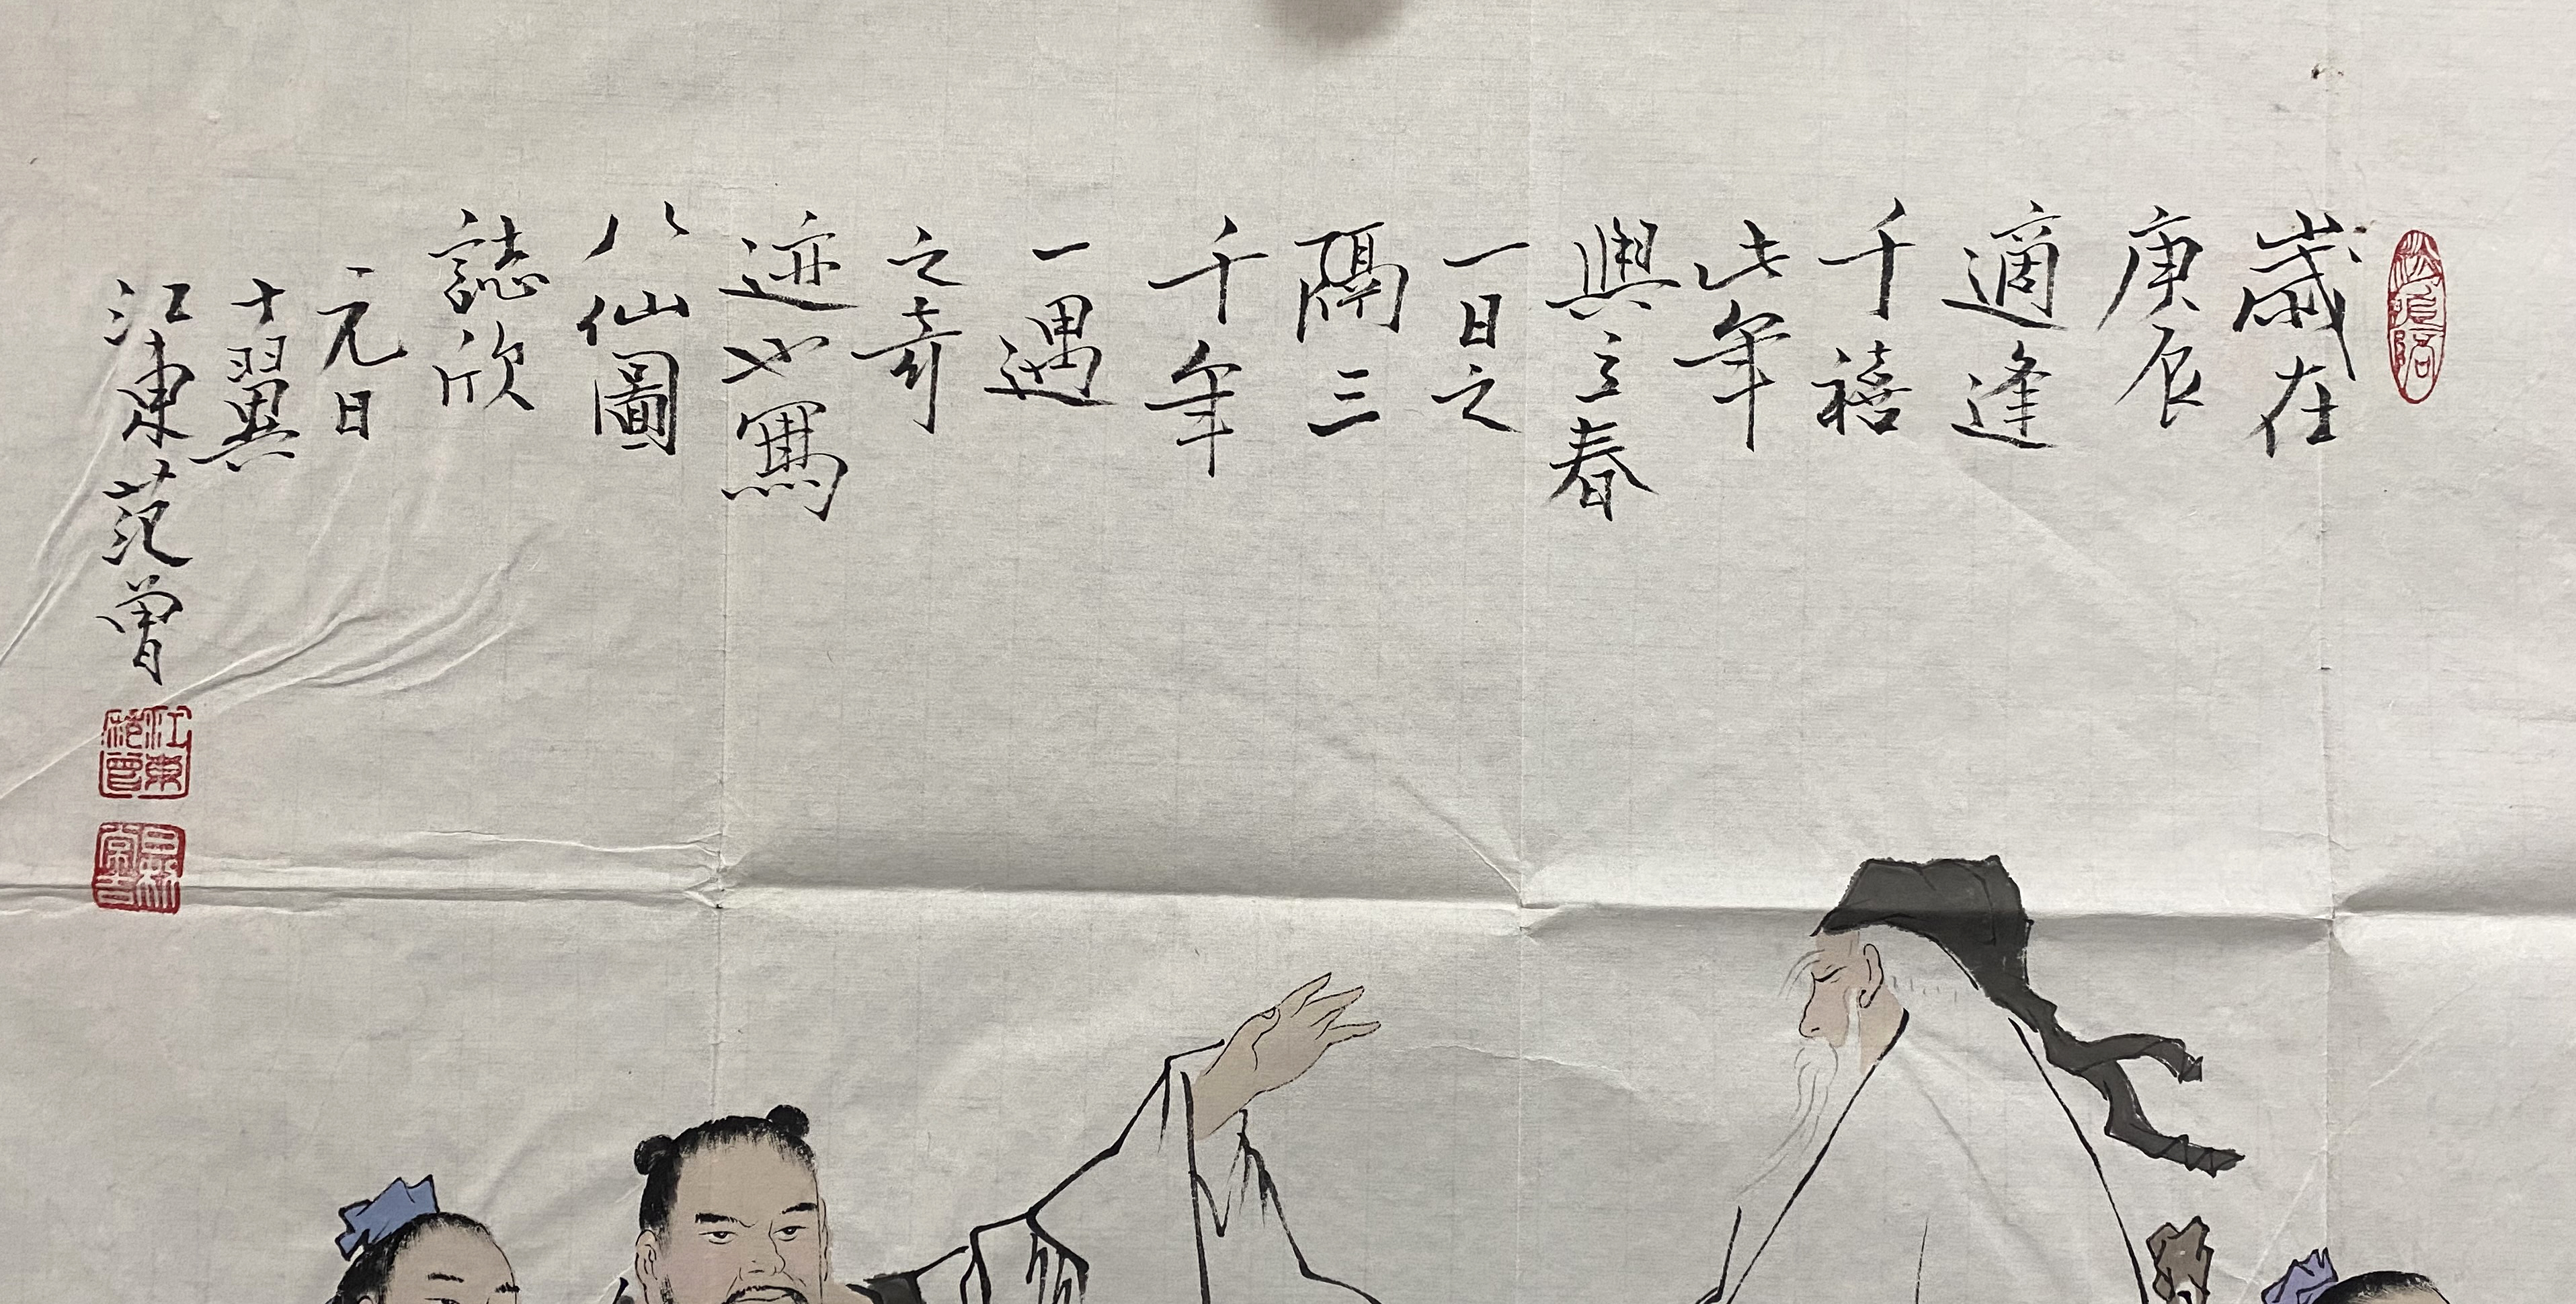 歲在
庚辰
適逢
千禧
此年
與立春
一日之
隔三
千年
一遇
之奇
迹也寫
八仙圖
誌欣
元日
十翼
江東范曾
江東范曾